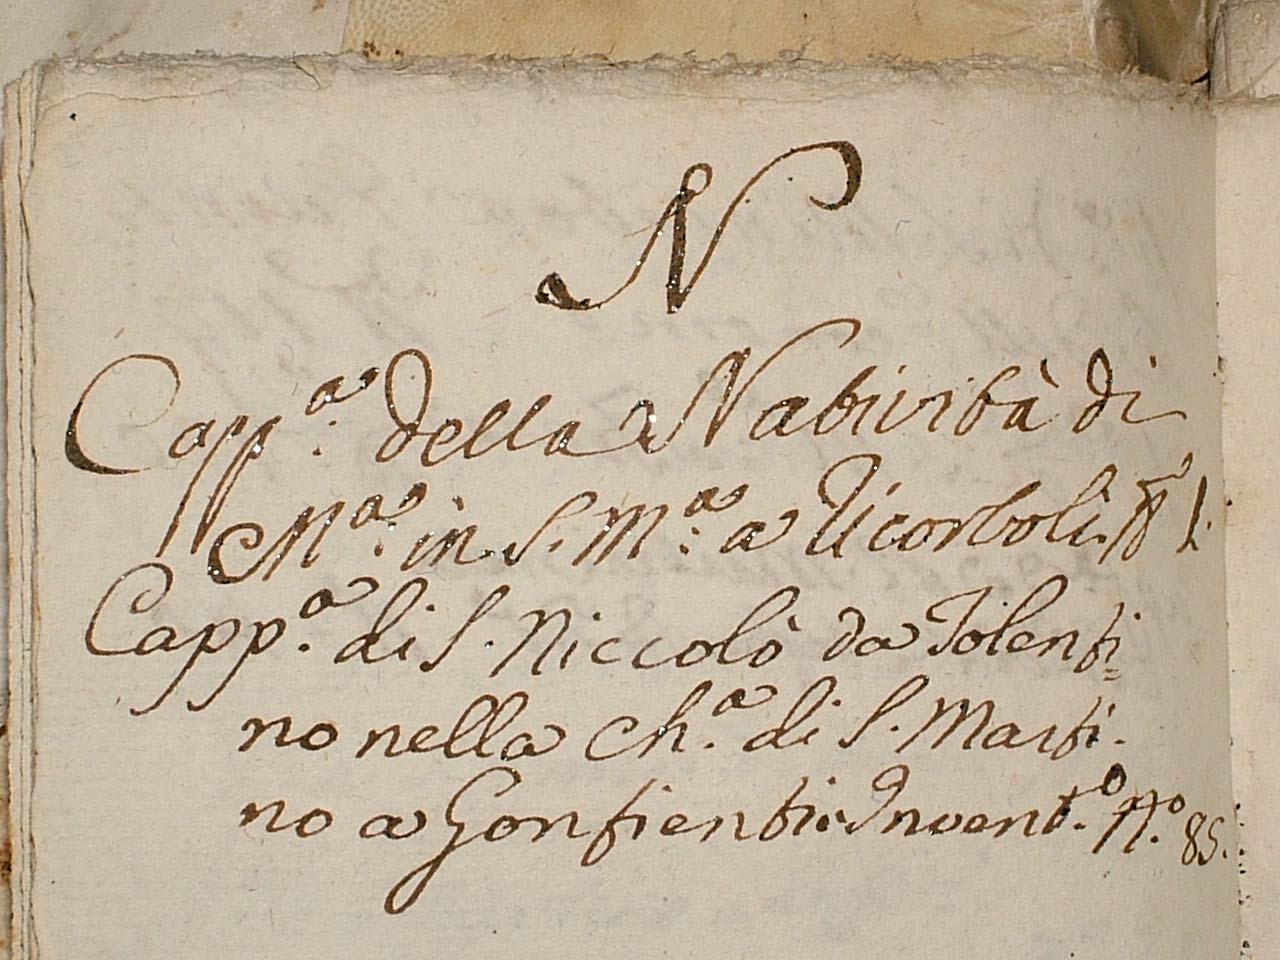 N
Capp.ª della Natività di
M.ª in S. M.ª a Ricorboli. N.º 1.
Capp.ª di S. Niccolò da Tolenti=
no nella Ch.ª di S. Marti.
no a Gonfienti. Invent.º N.º 85.